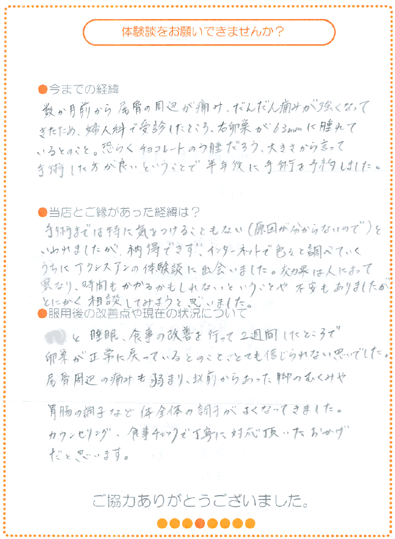 体験談をお願いできませんか？
●今までの経緯
数か月前から尾骨の周辺が痛み、だんだん痛みが強くなって
きたため、婦人科で受診したところ、右卵巣が63mmに腫れて
いるとのこと。恐らくチョコレートのう腫だろう、大きさから言って
手術した方が良いということで半年後に手術を予約しました。
●当店とご縁があった経緯は？
手術までは特に気をつけることもない(原因が分からないので)と
いわれましたが、納得できず、インターネットで色々と調べていく
うちにアクシスアンの体験談に出会いました。効果は人によって
異なり、時間もかかるかもしれないということや不安もありましたが
とにかく相談してみようと思いました。
●服用後の改善点や現在の状況について
と睡眠、食事の改善を行って2週間したところで
卵巣が正常に戻っているとのことでとても信じられない思いでした。
尾骨周辺の痛みも弱まり、以前からあった脚のむくみや
胃腸の調子など体全体の調子がよくなってきました。
カウンセリング、食事チェックで丁寧に対応頂いたおかげ
だと思います。
ご協力ありがとうございました。